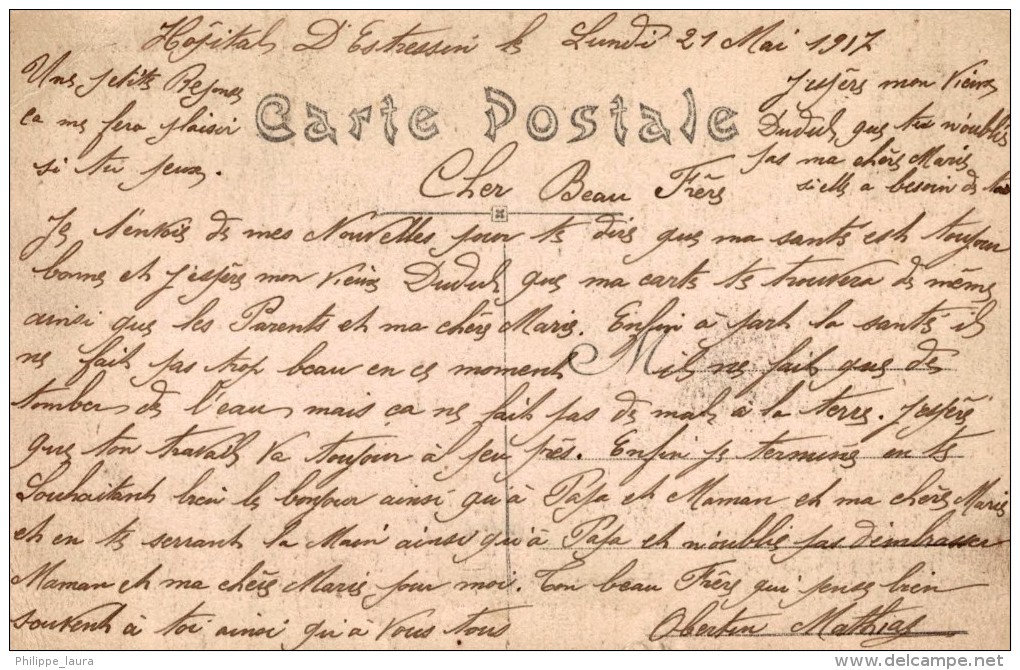 Hôpital D'Estressin le Lundi 21 Mai 1917
Une petite Reponse
ca me fera plaisir
si tu peux.
J'espére mon Vieux
Dudul que tu n'oublis
pas ma chére Marie
si elle a besoin de toi
Carte Postale
Cher Beau Frére
Je t'envoie de mes Nouvelles pour te dire que ma santé est toujour
bonne et j'espére mon Vieux Dudul que ma carte te trouvera de méme
ainsi que les Parents et ma chére Marie. Enfin á part la santé il
ne fait pas trop beau en ce moment M il ne fait que de
tomber de l'eau mais ça ne fait pas de mal á la terre. J'espére
que ton travail va toujour á peu prés. Enfin je termine en te
Souhaitant bien le bonjour ainsi qu'á Papa et Maman et ma chére Marie
et en te serrant la Main ainsi qu'á Papa et n'oublie pas d'embrasser
Maman et ma chére Marie pour moi. Ton beau Frére qui pense bien
souvent á toi ainsi qu'á Vous tous Obertin Mathias
Philippe_laura
delcampe.net